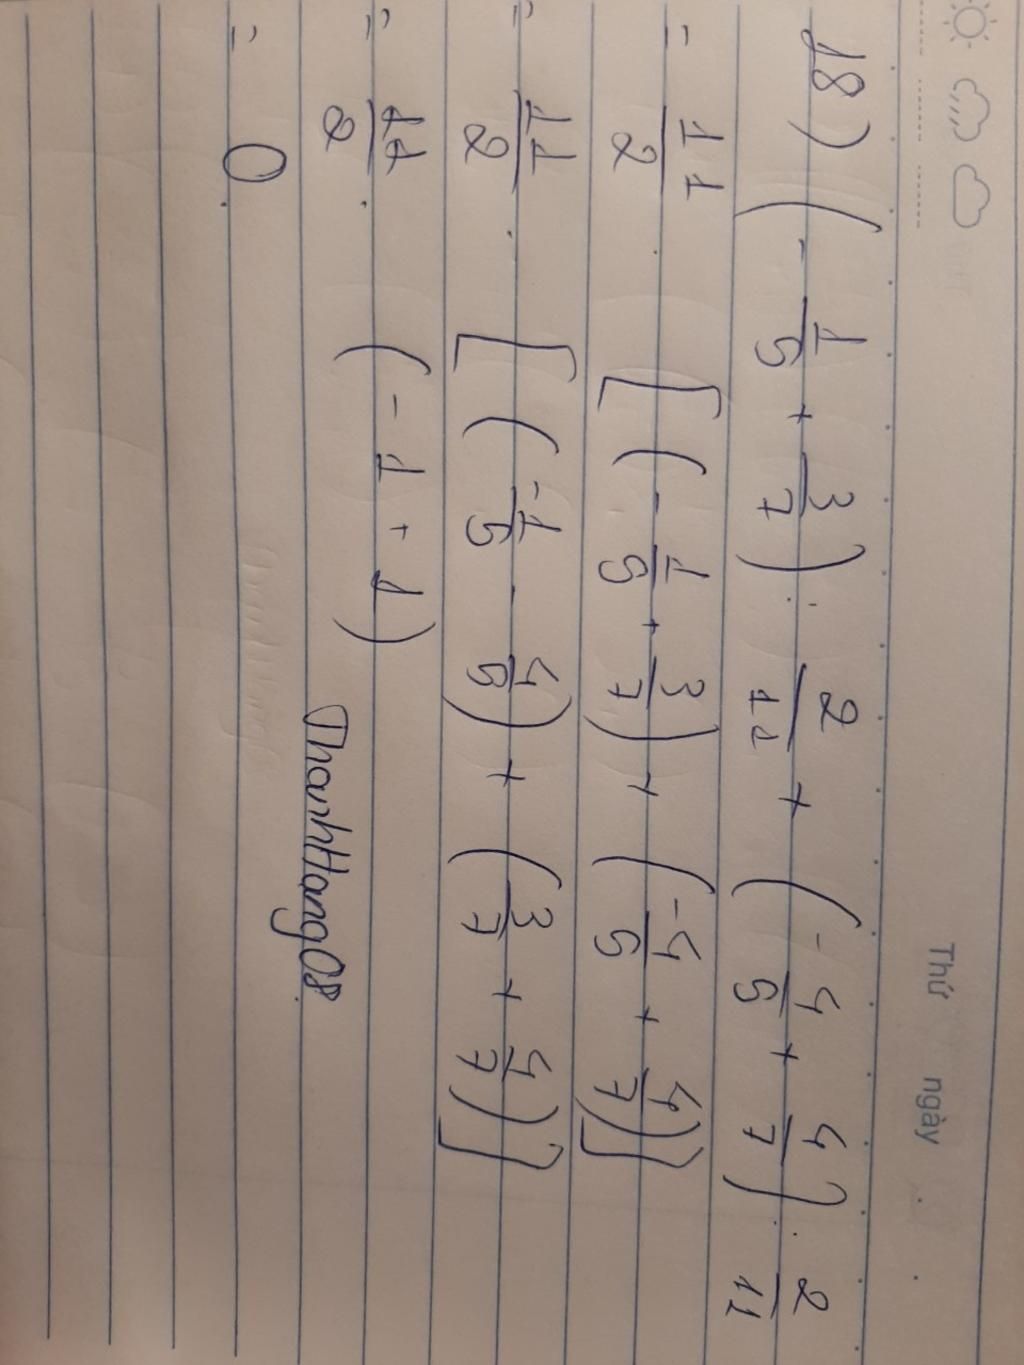 Thứ ngày
18) (- 1/5 + 3/7) . 2/11 + (- 4/5 + 4/7) . 2/11
= 11/2 . [(- 1/5 + 3/7) + (-4/5 + 4/7)]
= 11/2 . [(-1/5 - 4/5) + (3/7 + 4/7)]
= 11/2 . (- 1 + 1)
= 0.
ThanhHang08.